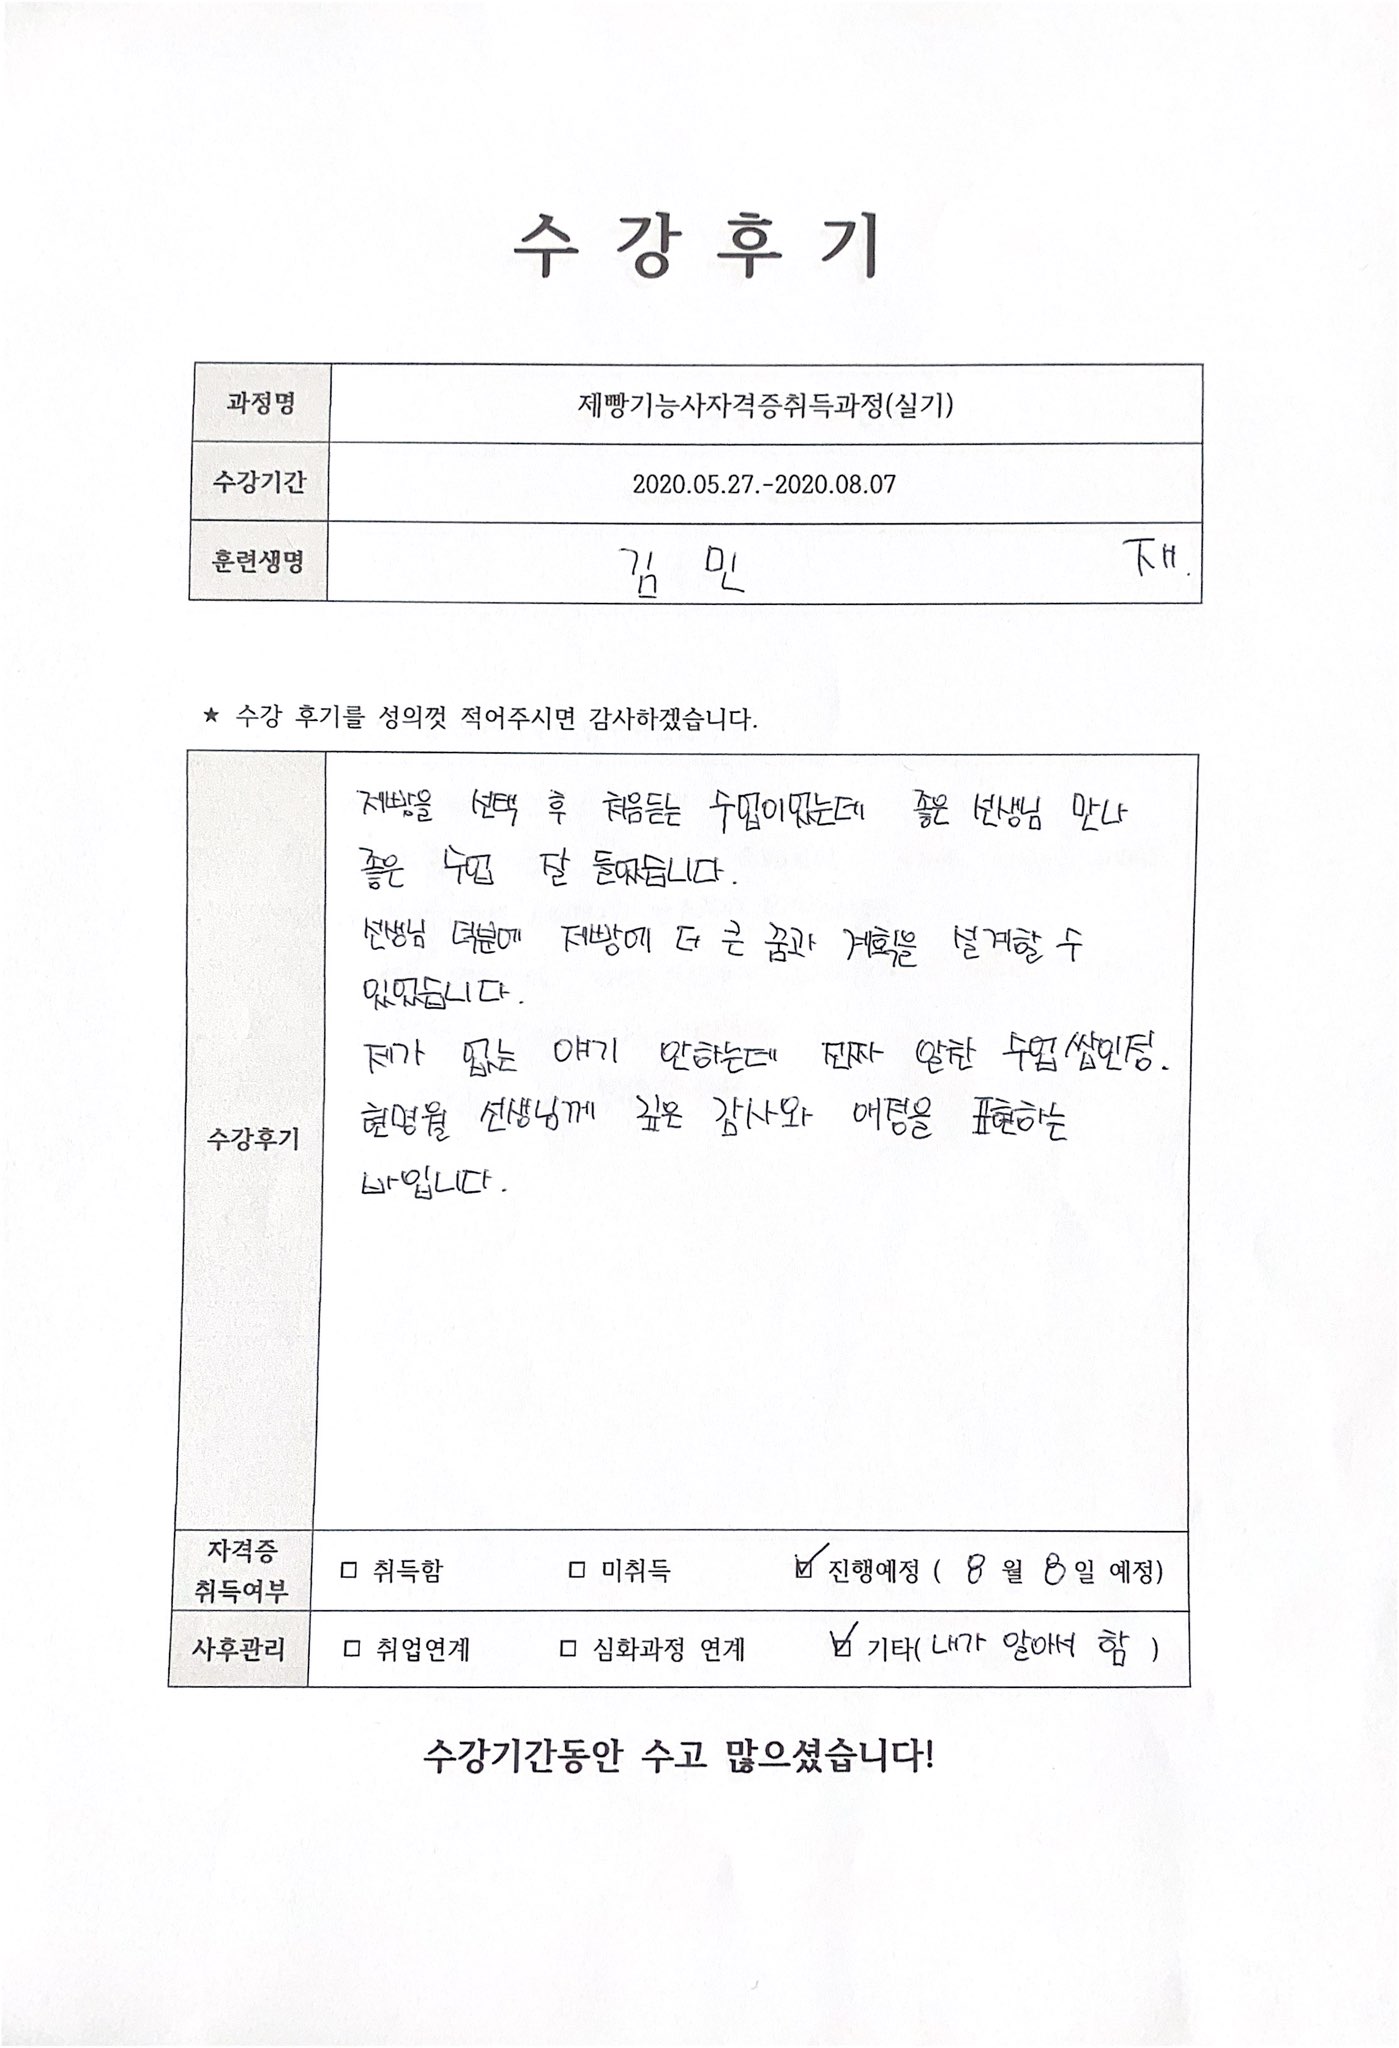 수 강 후 기
과정명 제빵기능사자격증취득과정(실기)
수강기간 2020.05.27.-2020.08.07
훈련생명 김 민 재.
★ 수강 후기를 성의껏 적어주시면 감사하겠습니다.
수강후기
제빵을 선택 후 처음듣는 수업이었는데 좋은 선생님 만나
좋은 수업 잘 들었습니다.
선생님 덕분에 제빵에 더 큰 꿈과 계획을 설계할 수
있었습니다.
제가 없는 얘기 안하는데 진짜 알찬 수업 쌉인정.
현명월 선생님께 깊은 감사와 애정을 표현하는
바입니다.
자격증
취득여부 □ 취득함 □ 미취득 ☑ 진행예정 ( 8 월 8 일 예정)
사후관리 □ 취업연계 □ 심화과정 연계 ☑ 기타( 내가 알아서 함 )
수강기간동안 수고 많으셨습니다!